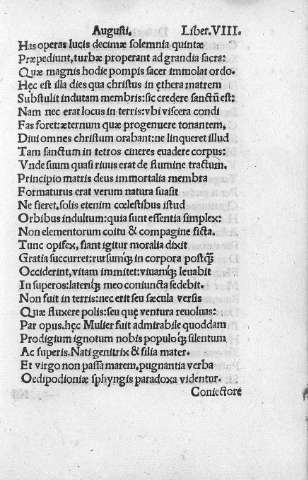 Augusti. Liber. VIII.
Has operas lucis decimæ solemnia quintæ
Præpediunt, turbæ properant ad grandia sacra:
Quæ magnis hodie pompis sacer immolat ordo.
Hęc est illa dies qua christus in ęthera matrem
Substulit indutam membris: sic credere sanctũ est:
Nam nec erat locus in terris: vbi viscera condi
Fas foret: æternum quæ progenuere tonantem,
Diui omnes christum orabant: ne linqueret illud
Tam sanctum in tetros cineres euadere corpus:
Vnde suum quasi riuus erat de flumine tractum.
Principio matris deus immortalia membra
Formaturus erat verum natura suasit
Ne fieret, solis etenim cœlestibus istud
Orbibus indultum: quia sunt essentia simplex:
Non elementorum coitu & compagine ficta.
Tunc opifex, fiant igitur moralia dixit
Gratis succurret: rursumq; in corpora postq̃
Occiderint, vitam immitet: viuamq; leuabit
In superos: lateriq; meo coniuncta sedebit.
Non fuit in terris: nec erit seu sæcula versis
Quæ fluxere polis: seu quę ventura reuoluas:
Par opus. hęc Mulier fuit admirabile quoddam
Prodigium ignotum nobis populoq; silentum
Ac superis. Nati genitrix & filia mater.
Et virgo non passa marem, pugnantia verba
Oedipodioniæ sphyngis paradoxa videntur.
Coniectore